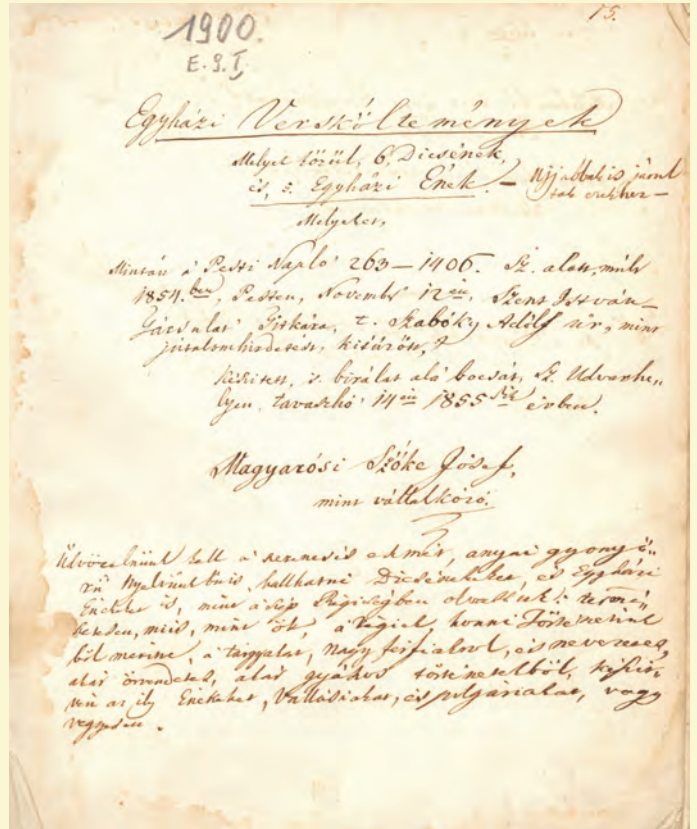 15.
1900.
E. 9. I.
Egyházi Versköltemények
Melyek közül, 6, Dicsének,
és, 5. Egyházi Ének. – Ujjabbak is járul
tak ezekhez –
Melyeket,
Mintán a Pesti Napló 263 – 1406. Sz. alatt, múlt
1854.ben, Pesten, Novembr 12én, Szent István
Titkára, t. Szabóky Adolf úr, mint
jutalomhirdetést, kitűzött,
készített, 's birálat alá bocsát, Sz. Udvarhe„
lyen, tavaszhó 14én 1855dik évben.
Magyarósi Szőke Jósef,
mint vállalkozó.
Üdvözelnünk kell a szerencsés eszmét, anyai gyönyö„
rű Nyelvünkbenis, hallhatni Dicsénekeket, és Egyházi
Éneket is, mint a Régiségben olvastuk:
mint ők, a régiek, honni Történetünk
ből merítve, a tárgyakat, nagy férfiakról, és nevezetes,
akár örvendetes, akár gyászos történetekből,
az ily Énekeket, Vallásiakat, és polgáriakat, vagy
vegyesen.